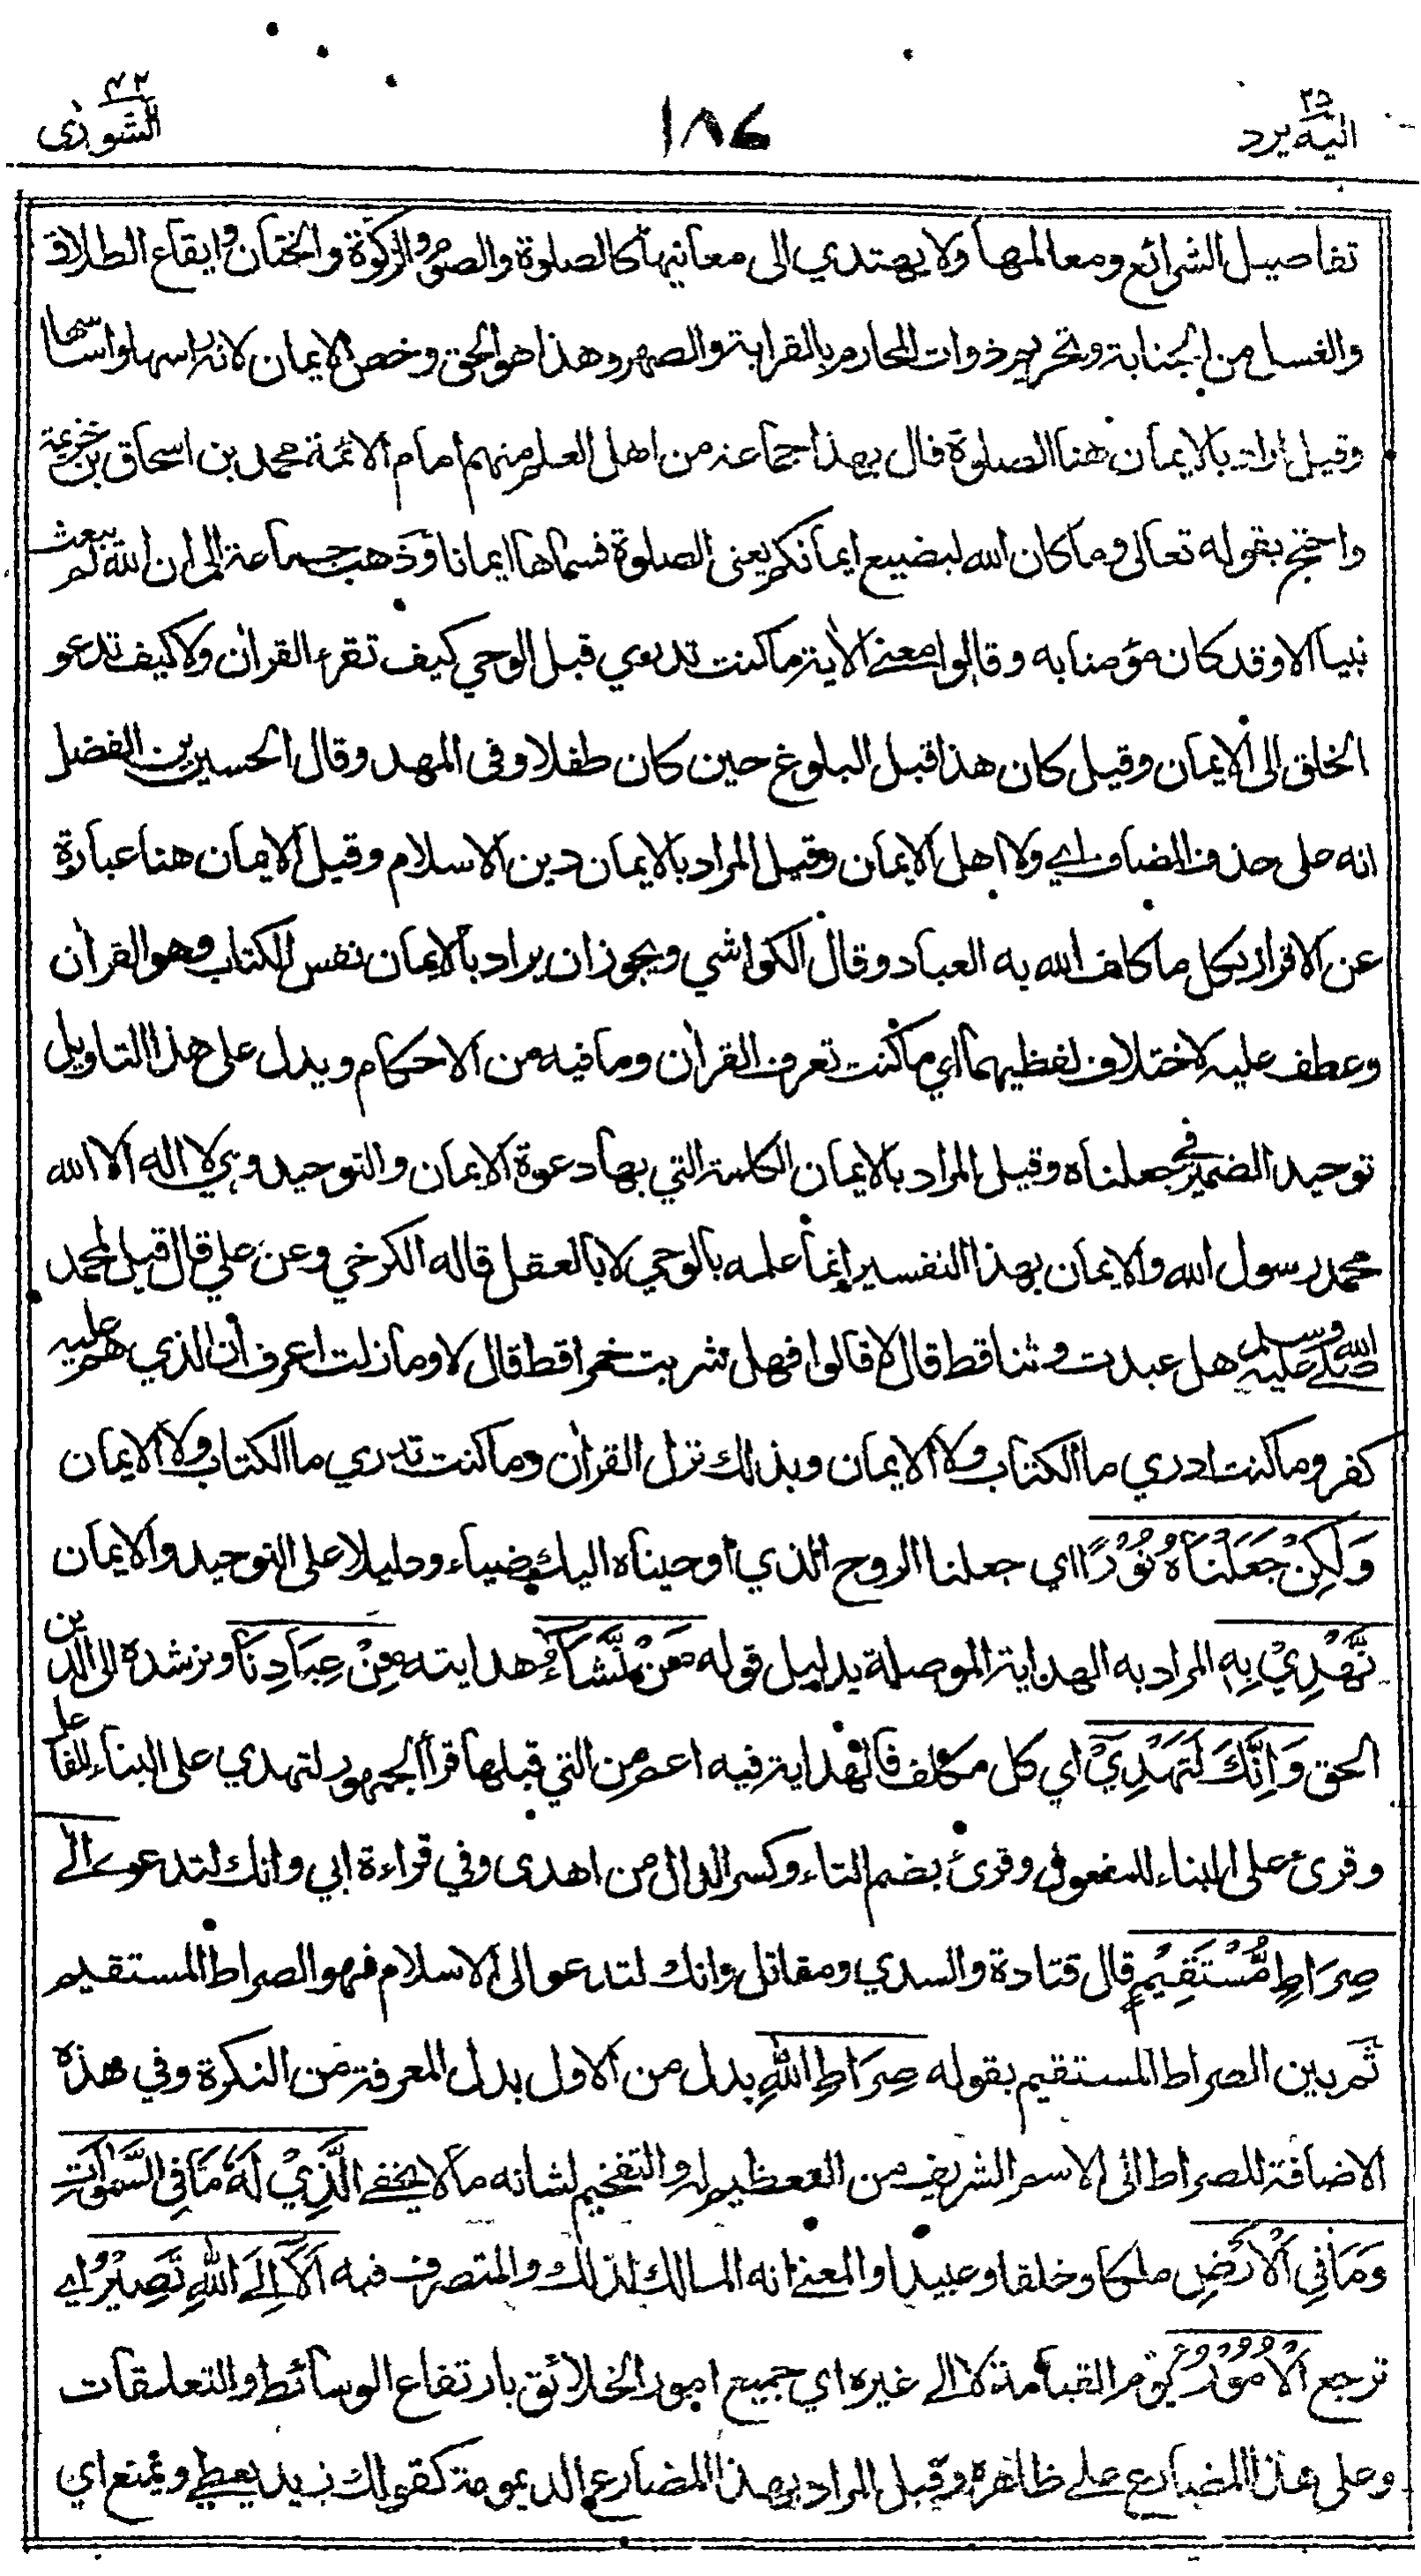 اليه يرد ٢٥
١٨٦
الشورى ٤٢
تفاصيل الشرائع ومعالمها ولا يهتدي الى معانيها كالصلوة والصوم والزكوة والختان وايقاع الطلاق
والغسل من الجنابة وتحريم ذوات المحارم بالقرابة والصهر وهذا هو الحق وخص الايمان لانه راسها واساسها
وقيل اراد بالايمان هنا الصلوة قال بهذا جماعة من اهل العلم منهم امام الائمة محمد بن اسحاق بن خزيمة
واحتج بقوله تعالى وما كان الله ليضيع ايمانكم يعنى الصلوة فسماها ايمانا وذهب جماعة الى ان الله لم يبعث
نبيا الا وقد كان مؤمنا به وقالوا معنى الاية ما كنت تدري قبل الوحي كيف تقرء القران ولا كيف تدعو
الخلق الى الايمان وقيل كان هذا قبل البلوغ حين كان طفلا وفى المهد وقال الحسين بن الفضل
انه على حذف المضاف اي ولا اهل الايمان وقيل المراد بالايمان دين الاسلام وقيل الايمان هنا عبارة
عن الاقرار بكل ما كلف الله به العباد وقال الكواشي ويجوز ان يراد بالايمان نفس الكتاب وهو القران
وعطف عليه لاختلاف لفظيهما اي ما كنت تعرف القران وما فيه من الاحكام ويدل على هذا التاويل
توحيد الضمير في جعلناه وقيل المراد بالايمان الكلمة التي بها دعوة الايمان والتوحيد وهي لا اله الا الله
محمد رسول الله والايمان بهذا التفسير انما علمه بالوحي لا بالعقل قاله الكرخي وعن علي قال قيل لمحمد
صلى الله عليه وسلم هل عبدت وثنا قط قال لا قالوا فهل شربت خمرا قط قال لا وما زلت اعرف ان الذي هم عليه
كفر وما كنت ادري ما الكتاب ولا الايمان وبذلك نزل القران وما كنت تدري ما الكتاب ولا الايمان
وَلَكِنْ جَعَلْنَاهُ نُوْرًا اي جعلنا الروح الذي اوحيناه اليك ضياء ودليلا على التوحيد والايمان
نَّهْدِيْ بِهٖ المراد به الهداية الموصلة بدليل قوله مَنْ نَّشَآءُ هدايته مِنْ عِبَادِنَا ونرشده الى الدين
الحق وَاِنَّكَ لَتَهْدِيْٓ اي كل مكلف فالهداية فيه اعم من التي قبلها قرأ الجمهور لتهدي على البناء للفاعل
وقرئ على البناء للمفعول وقرئ بضم التاء وكسر الدال من اهدى وفي قراءة ابي وانك لتدعو اِلٰى
صِرَاطٍ مُّسْتَقِيْمٍ قال قتادة والسدي ومقاتل وانك لتدعو الى الاسلام فهو الصراط المستقيم
ثم بين الصراط المستقيم بقوله صِرَاطِ اللهِ بدل من الاول بدل المعرفة من النكرة وفي هذه
الاضافة للصراط الى الاسم الشريف من التعظيم له والتفخيم لشانه ما لا يخفى الَّذِيْ لَهٗ مَا فِي السَّمٰوٰتِ
وَمَا فِي الْاَرْضِ ملكا وخلقا وعبيدا والمعنى انه المالك لذلك والمتصرف فيه اَلَآ اِلَى اللهِ تَصِيْرُ اي
ترجع الْاُمُوْرُ يوم القيامة لا الى غيره اي جميع امور الخلائق بارتفاع الوسائط والتعلقات
وعلى هذا المضارع على ظاهره وقيل المراد بهذا المضارع الديمومة كقولك زيد يعطي ويمنع اي